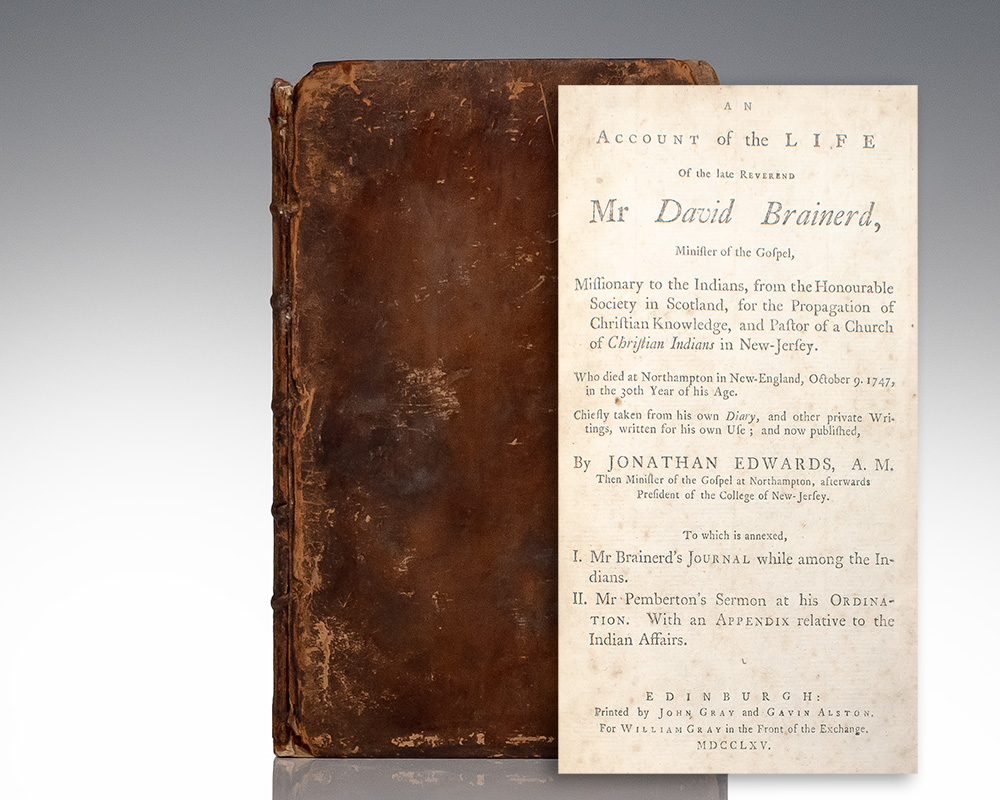 AN
ACCOUNT of the LIFE
Of the late REVEREND
Mr David Brainerd,
Miniſter of the Goſpel,
Miſſionary to the Indians, from the Honourable
Society in Scotland, for the Propagation of
Chriſtian Knowledge, and Paſtor of a Church
of Chriſtian Indians in New-Jerſey.
Who died at Northampton in New-England, October 9. 1747,
in the 30th Year of his Age.
Chiefly taken from his own Diary, and other private Wri-
tings, written for his own Uſe; and now publiſhed,
By JONATHAN EDWARDS, A. M.
Then Miniſter of the Goſpel at Northampton, afterwards
Preſident of the College of New-Jerſey.
To which is annexed,
I. Mr Brainerd's JOURNAL while among the In-
dians.
II. Mr Pemberton's Sermon at his ORDINA-
TION. With an APPENDIX relative to the
Indian Affairs.
EDINBURGH:
Printed by JOHN GRAY and GAVIN ALSTON.
For WILLIAM GRAY in the Front of the Exchange.
MDCCLXV.